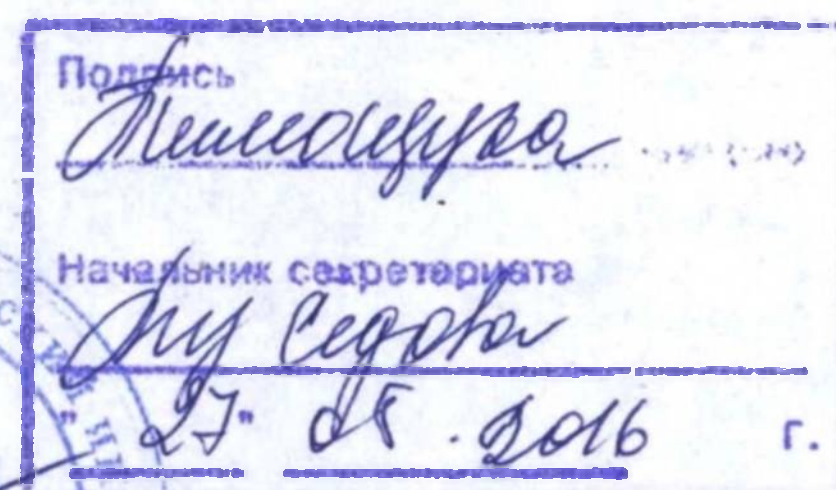 Подпись
Тимощука
Начальник секретариата
Седова
"27" 05.2016 г.